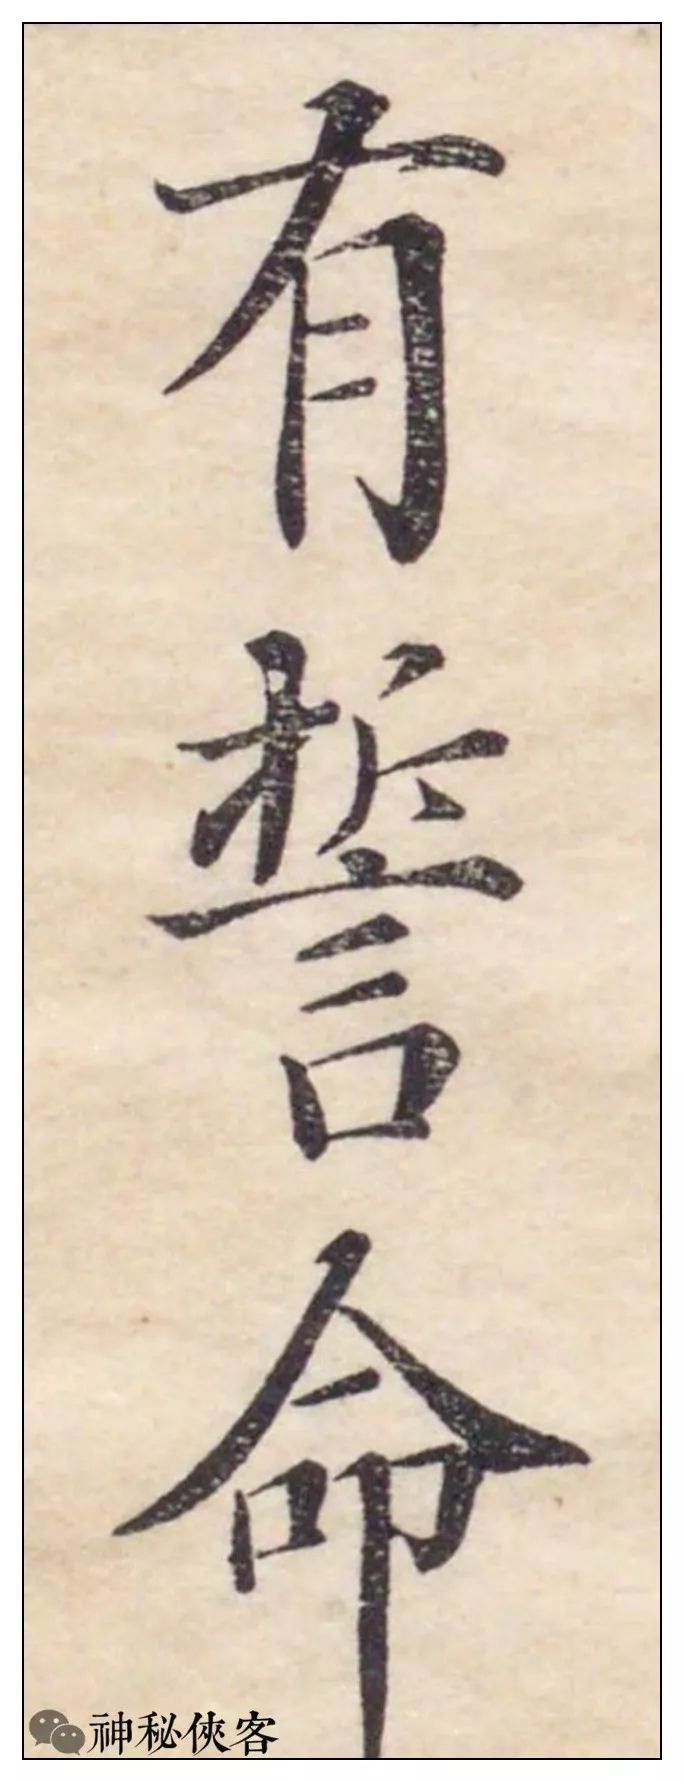 有誓命
神秘俠客